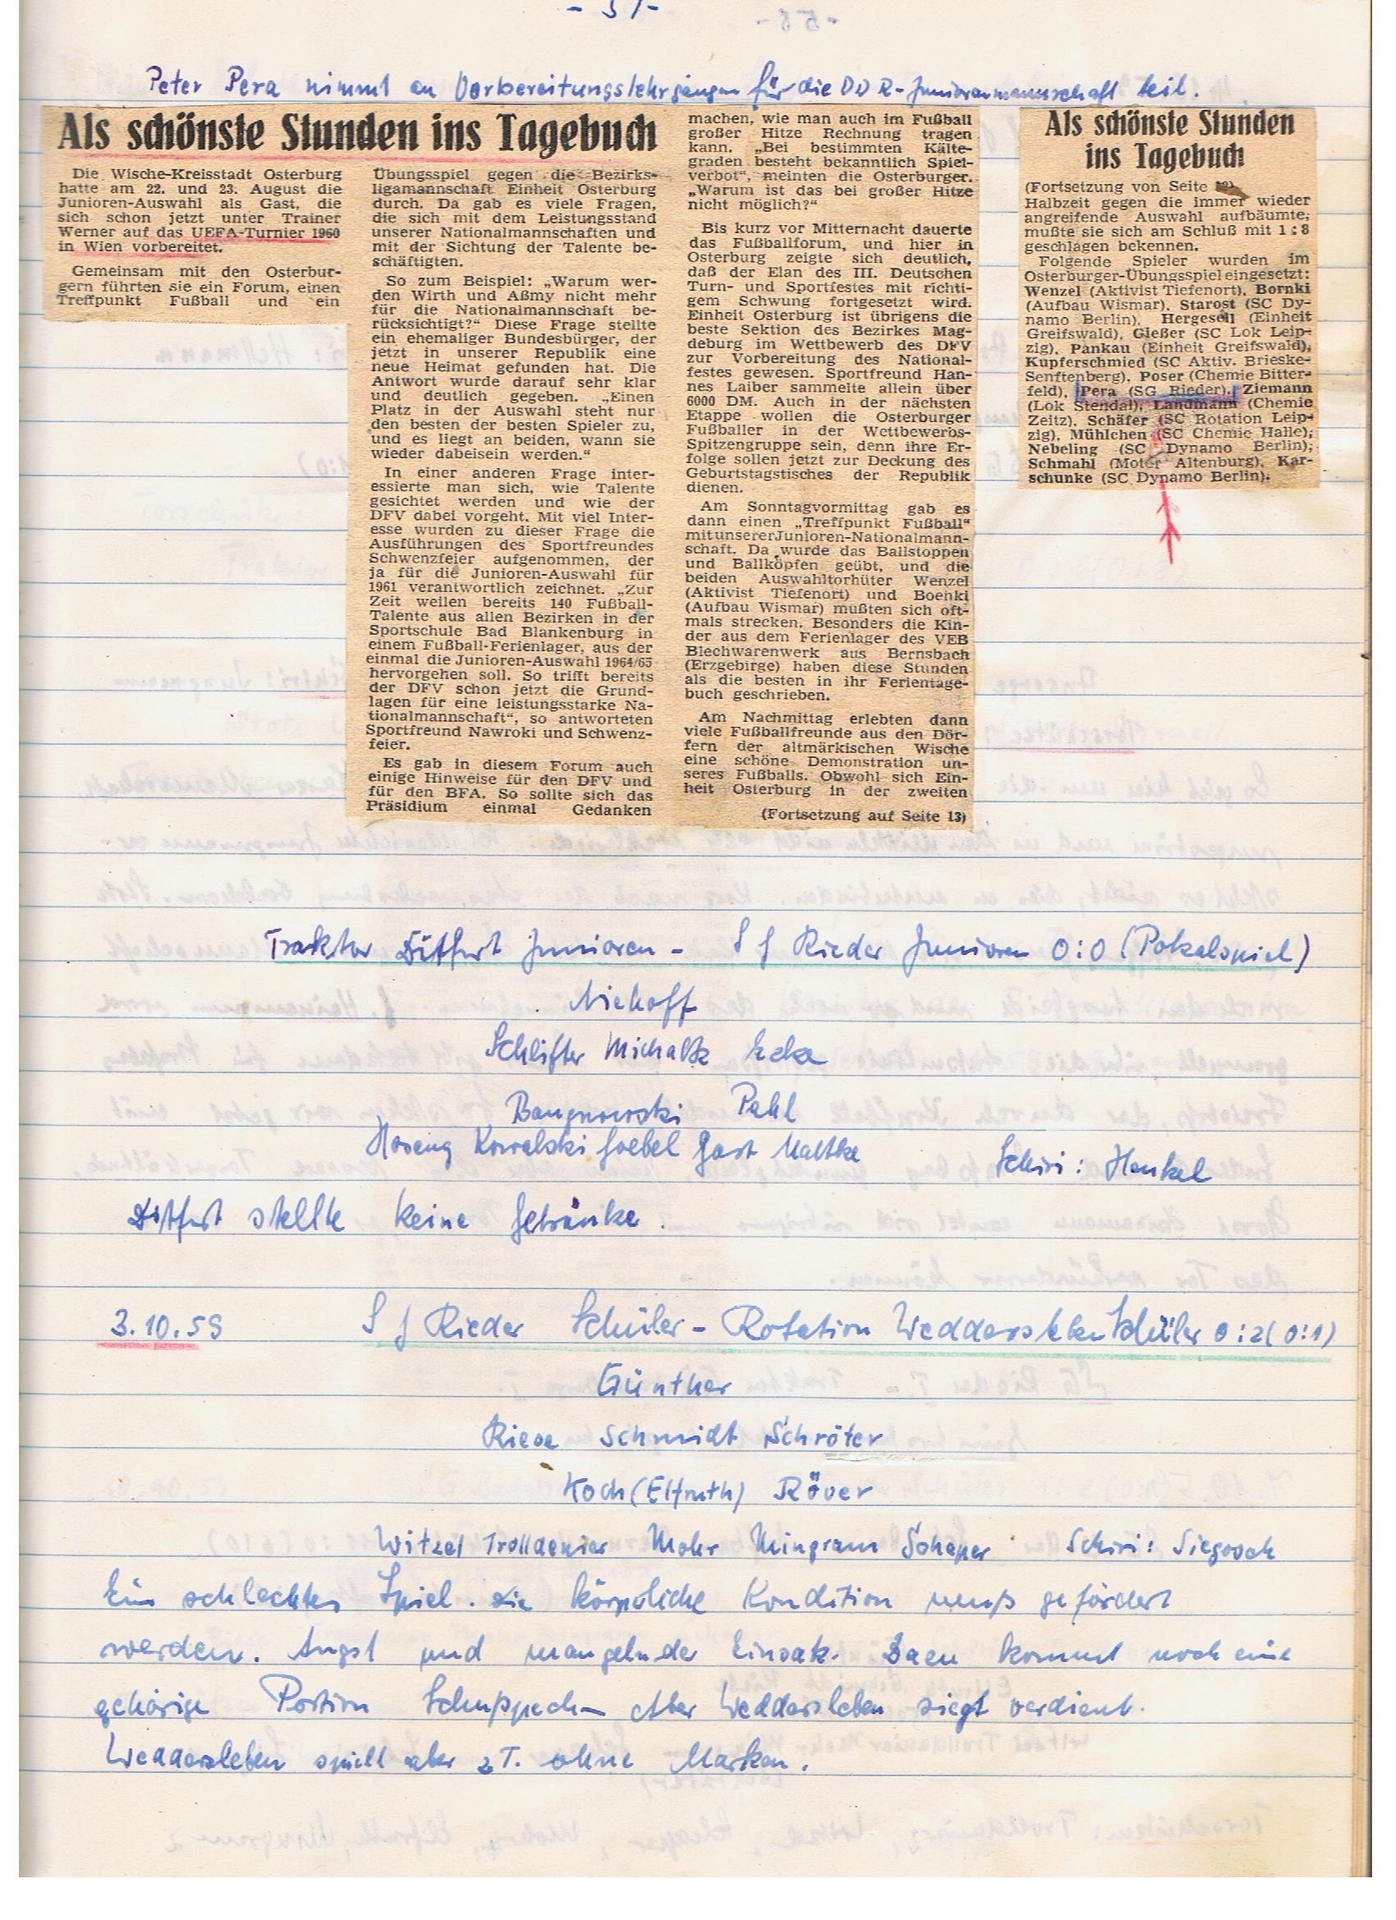 Peter Pera nimmt an Vorbereitungslehrgängen für die DDR-Juniorenmannschaft teil.
Als schönste Stunden ins Tagebuch
Die Wische-Kreisstadt Osterburg
hatte am 22. und 23. August die
Junioren-Auswahl als Gast, die
sich schon jetzt unter Trainer
Werner auf das UEFA-Turnier 1960
in Wien vorbereitet.
Gemeinsam mit den Osterbur-
gern führten sie ein Forum, einen
Treffpunkt Fußball und ein
Übungsspiel gegen die Bezirks-
ligamannschaft Einheit Osterburg
durch. Da gab es viele Fragen,
die sich mit dem Leistungsstand
unserer Nationalmannschaften und
mit der Sichtung der Talente be-
schäftigten.
So zum Beispiel: „Warum wer-
den Wirth und Aßmy nicht mehr
für die Nationalmannschaft be-
rücksichtigt?“ Diese Frage stellte
ein ehemaliger Bundesbürger, der
jetzt in unserer Republik eine
neue Heimat gefunden hat. Die
Antwort wurde darauf sehr klar
und deutlich gegeben. „Einen
Platz in der Auswahl steht nur
den besten der besten Spieler zu,
und es liegt an beiden, wann sie
wieder dabeisein werden.“
In einer anderen Frage inter-
essierte man sich, wie Talente
gesichtet werden und wie der
DFV dabei vorgeht. Mit viel Inter-
esse wurden zu dieser Frage die
Ausführungen des Sportfreundes
Schwenzfeier aufgenommen, der
ja für die Junioren-Auswahl für
1961 verantwortlich zeichnet. „Zur
Zeit weilen bereits 140 Fußball-
Talente aus allen Bezirken in der
Sportschule Bad Blankenburg in
einem Fußball-Ferienlager, aus der
einmal die Junioren-Auswahl 1964/65
hervorgehen soll. So trifft bereits
der DFV schon jetzt die Grund-
lagen für eine leistungsstarke Na-
tionalmannschaft“, so antworteten
Sportfreund Nawroki und Schwenz-
feier.
Es gab in diesem Forum auch
einige Hinweise für den DFV und
für den BFA. So sollte sich das
Präsidium einmal Gedanken
machen, wie man auch im Fußball
großer Hitze Rechnung tragen
kann. „Bei bestimmten Kälte-
graden besteht bekanntlich Spiel-
verbot“, meinten die Osterburger.
„Warum ist das bei großer Hitze
nicht möglich?“
Bis kurz vor Mitternacht dauerte
das Fußballforum, und hier in
Osterburg zeigte sich deutlich,
daß der Elan des III. Deutschen
Turn- und Sportfestes mit richti-
gem Schwung fortgesetzt wird.
Einheit Osterburg ist übrigens die
beste Sektion des Bezirkes Mag-
deburg im Wettbewerb des DFV
zur Vorbereitung des National-
festes gewesen. Sportfreund Han-
nes Laiber sammelte allein über
6000 DM. Auch in der nächsten
Etappe wollen die Osterburger
Fußballer in der Wettbewerbs-
Spitzengruppe sein, denn ihre Er-
folge sollen jetzt zur Deckung des
Geburtstagstisches der Republik
dienen.
Am Sonntagvormittag gab es
dann einen „Treffpunkt Fußball“
mit unserer Junioren-Nationalmann-
schaft. Da wurde das Ballstoppen
und Ballköpfen geübt, und die
beiden Auswahltorhüter Wenzel
(Aktivist Tiefenort) und Boenki
(Aufbau Wismar) mußten sich oft-
mals strecken. Besonders die Kin-
der aus dem Ferienlager des VEB
Blechwarenwerk aus Bernsbach
(Erzgebirge) haben diese Stunden
als die besten in ihr Ferientage-
buch geschrieben.
Am Nachmittag erlebten dann
viele Fußballfreunde aus den Dör-
fern der altmärkischen Wische
eine schöne Demonstration un-
seres Fußballs. Obwohl sich Ein-
heit Osterburg in der zweiten
(Fortsetzung auf Seite 13)
Als schönste Stunden
ins Tagebuch
(Fortsetzung von Seite 12)
Halbzeit gegen die immer wieder
angreifende Auswahl aufbäumte,
mußte sie sich am Schluß mit 1:8
geschlagen bekennen.
Folgende Spieler wurden im
Osterburger-Übungsspiel eingesetzt:
Wenzel (Aktivist Tiefenort), Bornki
(Aufbau Wismar), Starost (SC Dy-
namo Berlin), Hergesell (Einheit
Greifswald), Gießer (SC Lok Leip-
zig), Pankau (Einheit Greifswald),
Kupferschmied (SC Aktiv. Brieske-
Senftenberg), Poser (Chemie Bitter-
feld), Pera (SG Rieder), Ziemann
(Lok Stendal), Landmann (Chemie
Zeitz), Schäfer (SC Rotation Leip-
zig), Mühlchen (SC Chemie Halle),
Nebeling (SC Dynamo Berlin),
Schmahl (Motor Altenburg), Kar-
schunke (SC Dynamo Berlin).
Traktor Ditfurt Junioren - SG Rieder Junioren 0:0 (Pokalspiel)
Niehoff
Schlifter Michalk Ecke
Pahl
Kowalski Goebel Gast Maltke
Schiri: Henkel
Ditfurt stellte keine Getränke.
3.10.59 SG Rieder Schüler - Rotation Weddersleben Schüler 0:2 (0:1)
Günther
Riese Schmidt Schröter
Koch (Elfruth) Röver
Witzel Trolldenier Mohr Mingram Schaper Schiri:
Ein schlechtes Spiel. Die körperliche Kondition muß gefördert
werden. Angst und mangelnder Einsatz. Dazu kommt noch eine
gehörige Portion Schußpech. Aber Weddersleben siegt verdient.
Weddersleben spielt aber z.T. ohne Marken.